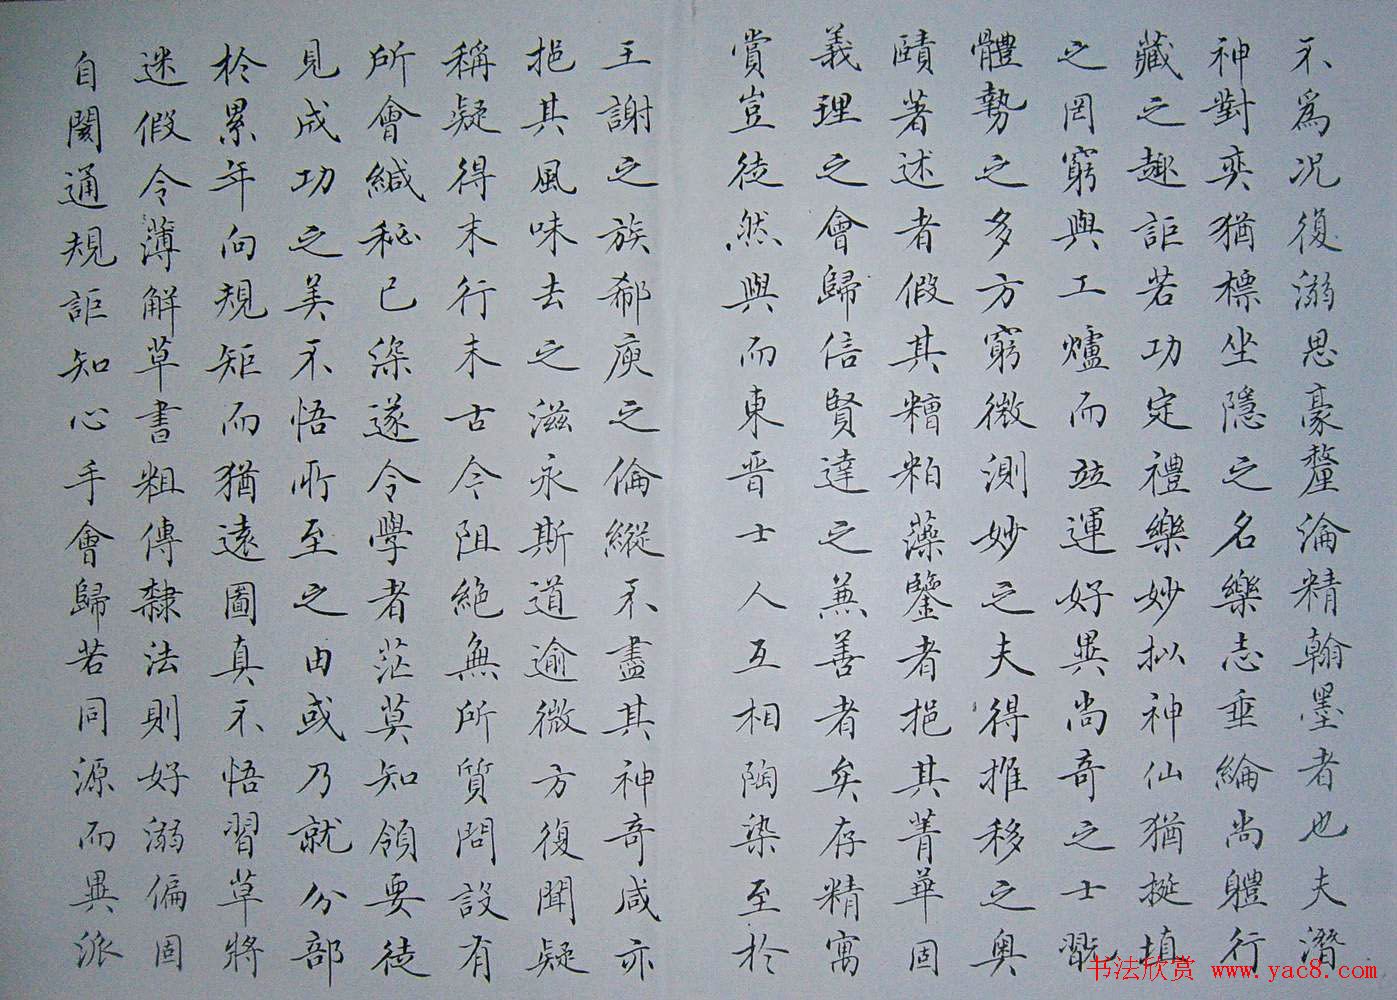 不為况復溺思豪釐淪精翰墨者也夫潛
神對奕猶標坐隱之名樂志垂綸尚軆行
藏之趣詎若功定禮樂妙拟神仙猶挻埴
之罔窮與工爐而竝運好異尚奇之士翫
體勢之多方窮微測妙之夫得推移之奥
賾著述者假其糟粕藻鑒者挹其菁華固
義理之會歸信賢達之兼善者矣存精寓
賞豈徒然與而東晋士人互相陶染至於
王謝之族郗庾之倫縱不盡其神奇咸亦
挹其風味去之滋永斯道逾微方復聞疑
稱疑得末行末古今阻絶無所質問設有
所會緘秘已深遂令學者茫莫知領要徒
見成功之美不悟所至之由或乃就分部
於累年向規矩而猶遠圖真不悟習草將
迷假令薄解草書粗傳隸法則好溺偏固
自閡通規詎知心手會歸若同源而異派
书法欣赏 www.yac8.com